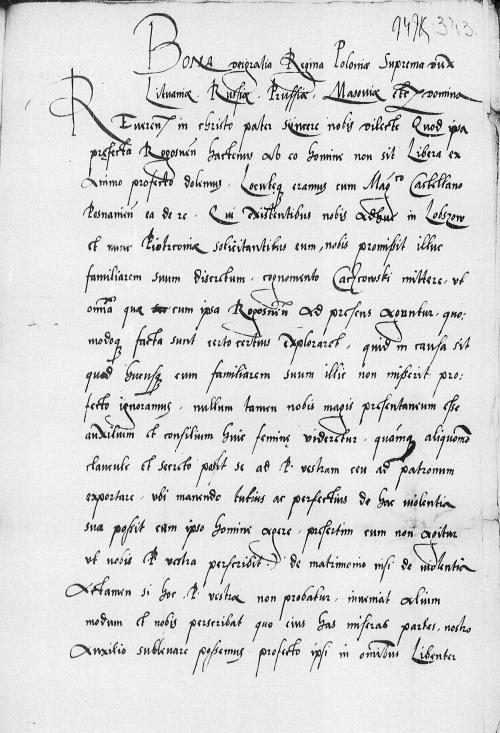 343.
Bona dei gratia Regina Poloniæ Suprema dux
Lituaniæ. Russiæ. Prussiæ. Masoviæ etc domina
Reveren̄ in christo pater syncere nobis dilecte Quod ipsa
præfecta Rogosnen̄ hactenus ab eo homine non sit Libera ex
animo profecto dolemus. Locuteq eramus cum Magco Castellano
Posnanien̄ ea de re. Qui existentibus nobis adhuc in Lobzow
et nunc Piotrcoviæ solicitantibus eum, nobis promissit illuc
familiarem suum discretum. cognomento mittere. ut
omīa quæ cum ipsa Rogosnen̄ ad præsens aguntur. quo:
modoq facta sunt certo certius exploraret. quid in causa sit
quod hucusq eum familiarem suum illic non misserit pro,
fecto ignoramus. nullum tamen nobis magis presentaneum esse
auxilium et consilium huic feminę videretur. quámq aliquomo
clancule et secreto posit se ad P. vestram ceu ad patronum
exportare. ubi manendo tutius ac perfectius de hac violentia
sua possit cum ipso homine agere. præsertim cum non agitur
ut nobis P. vestra perscribit. de matrimonio nisi de violentia
Attamen si hoc P. vestræ non probatur. inveniat alium
modum et nobis perscribat quo eius has miseras partes. nostro
Auxilio sublevare possemus. profecto ipsi in omībus Libenter